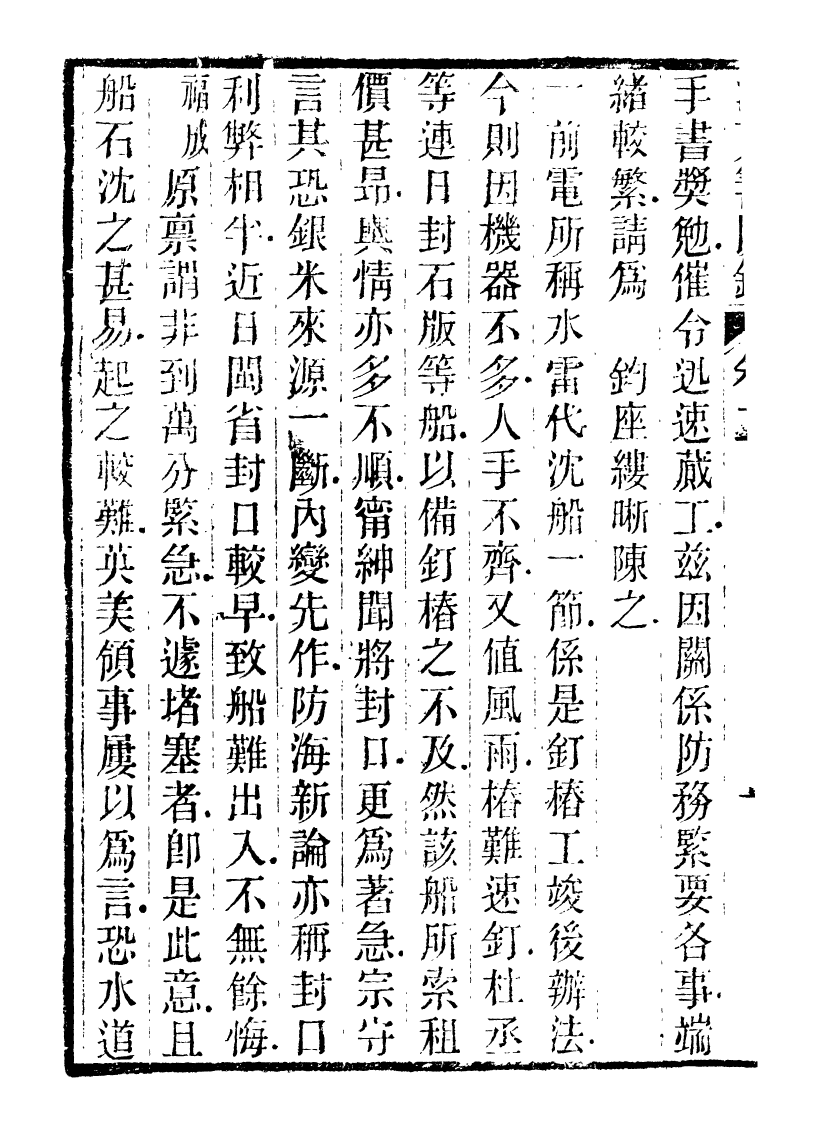 手書獎勉.催令迅速蕆工.茲因關係防務緊要各事.端
緒較繁.請爲　鈞座縷晰陳之.
一前電所稱水雷代沈船一節.係是釘樁工竣後辦法.
今則因機器不多.人手不齊.又値風雨.樁難速釘.杜丞
等連日封石版等船.以備釘樁之不及.然該船所索租
價甚昻.輿情亦多不順.甯紳聞將封口.更爲著急.宗守
言其恐銀米來源一斷.內變先作.防海新論亦稱封口
利弊相半.近日閩省封口較早.致船難出入.不無餘悔.
福成原稟謂非到萬分緊急.不遽堵塞者.卽是此意.且
船石沈之甚易.起之較難.英美領事屢以爲言.恐水道